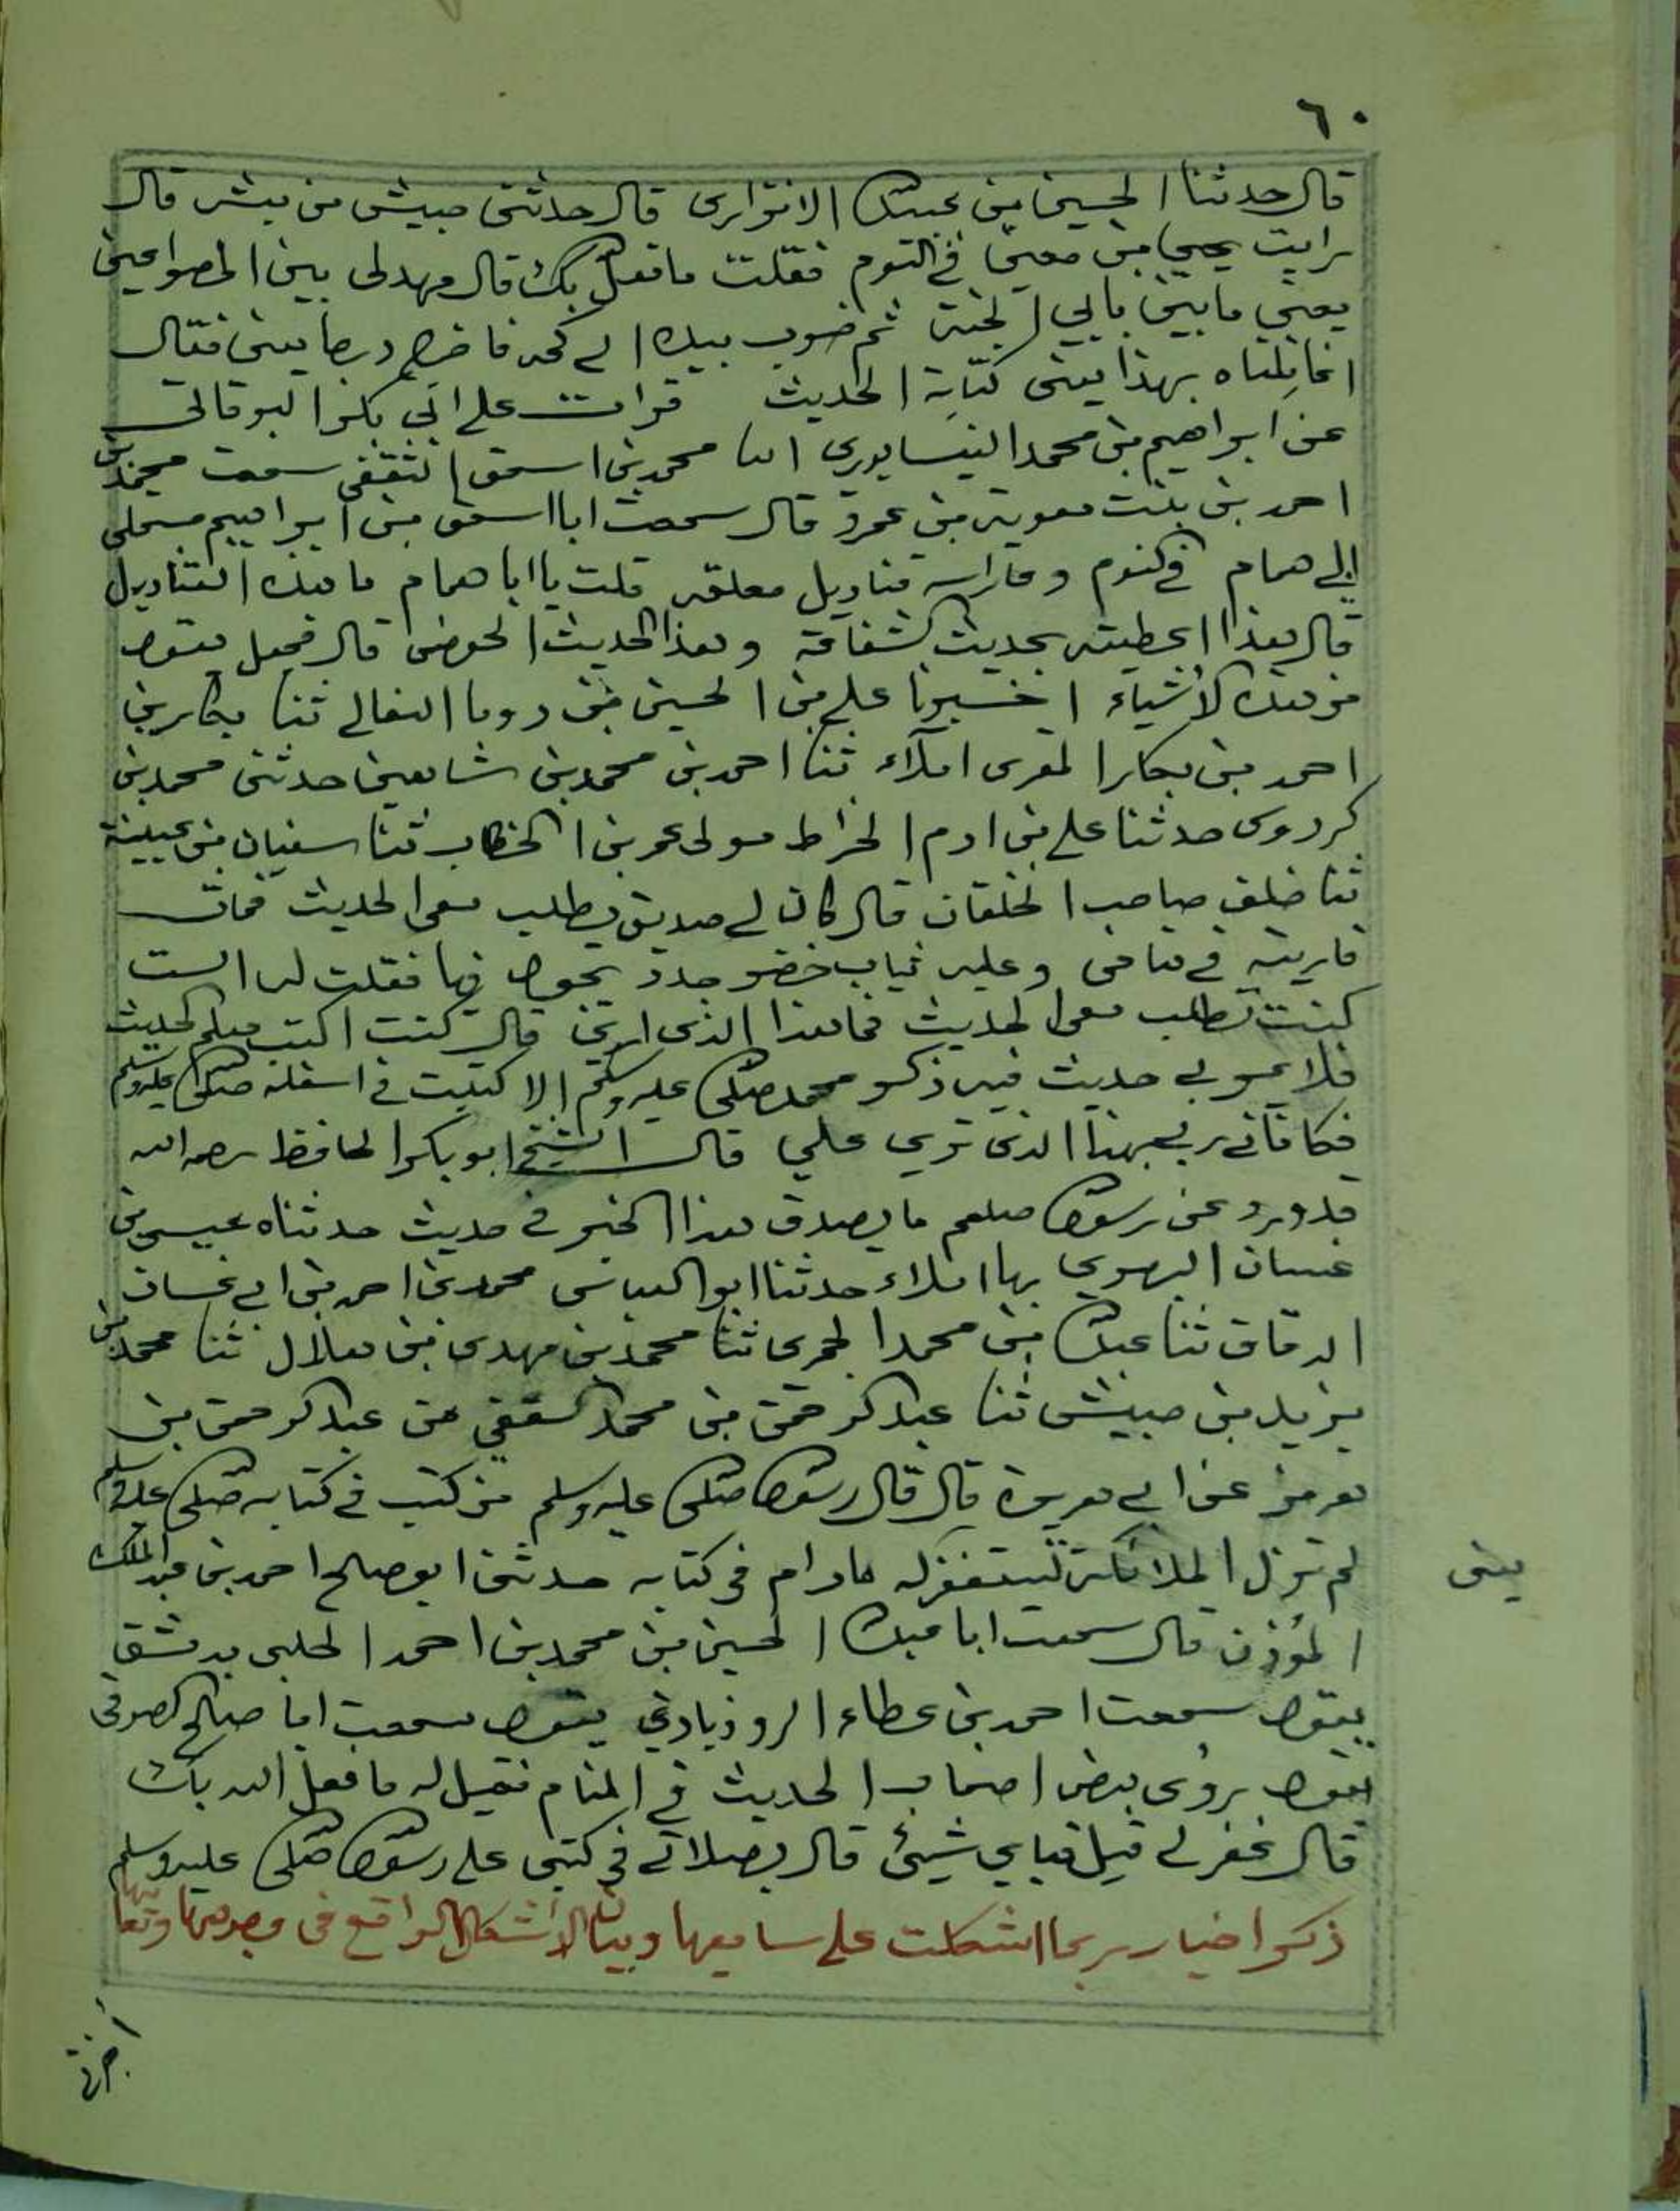 ٦٠
قال حدثنا الحسين بن عبيد الله الابزاري قال حدثني حبيش من مبشر قال
رايت يحيى بن معين في النوم فقلت ما فعل الله بك قال مهد لي بين المصراعين
يعني ما بين بابي الجنة ثم ضرب بيده الى كمه فاخرج درجا يعني فقال
انما نلناه بهذا يعني كتابة الحديث قرات على ابي بكر البرقاني
عن ابراهيم بن محمد النيسابوري انا محمد بن اسحق الثقفي سمعت محمد بن
احمد بن بنت معوية بن عمرو قال سمعت ابا اسحق بن ابراهيم
ابي همام في النوم وعلى راسه قناديل معلقه قلت يا ابا همام ما هذه القناديل
قال هذا اعطيته بحديث الشفاعة وهذا الحديث الحوض قال فجعل يقول
من هذه الأشياء اخبرنا علي بن الحسين بن دوما النعالي ثنا بكار بن
احمد بن بكار المقرى املآء ثنا احمد بن محمد بن شاهين حدثني محمد بن
كردوى حدثنا علي بن ادم الخراط مولى عمر بن الخطاب ثنا سفيان بن عيينة
ثنا خلف صاحب الخلقان قال كان لي صديق يطلب معي الحديث فمات
فاريته في منامي وعليه ثياب خضر جدد يجول فيها فقلت له الست
كنت تطلب معي الحديث فما هذا الذي ارى قال كنت اكتب معكم الحديث
فلا يمر بي حديث فيه ذكر محمد صلى الله عليه وسلم الا كتبت في اسفله صلى الله عليه وسلم
فكافاني ربي بهذا الذي تري علي قال الشيخ ابو بكر الحافظ رحمه الله
قد ورد عن رسول الله صلعم ما يصدق هذا الخبر في حديث حدثناه عيسى بن
غسان البصري بها املاء حدثنا ابو العباس محمد بن احمد بن ابي غسان
الدقاق ثنا عبد الله بن محمد الحمرى ثنا محمد بن مهدي بن هلال ثنا محمد بن
يزيد بن حبيش ثنا عبد الرحمن بن محمد الثقفي عن عبد الرحمن بن
هرمز عن ابي هريرة قال قال رسول الله صلى الله عليه وسلم من كتب في كتابه صلى الله عليه وسلم
لم تزل الملائكة تستغفر له ما دام في كتابه حدثني ابو صالح احمد بن عبد الملك
يعنى
المؤذن قال سمعت ابا عبد الله الحسين بن محمد بن احمد الحلبي بدمشق
يقول سمعت احمد بن عطاء الروذبادي يقول سمعت ابا صالح الصوفي
يقول روئى بعض اصحاب الحديث في المنام فقيل له ما فعل الله بك
قال غفر لي قيل فباي شيئ قال بصلاتي في كتبي على رسول الله صلى الله عليه وسلم
ذكر اخبار ربما اشكلت على سامعيها وبيان الأشكال الواقع في وجوهها ومعانيها